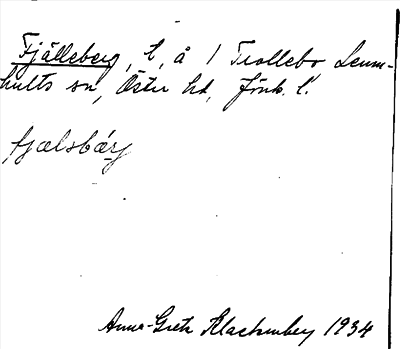 Fjälleberg, t, å 1 Trollebo Lemn-
hults sn, Östra hd, Jönk. l.
fjælsbærj
Anna-Greta Klackenberg 1934